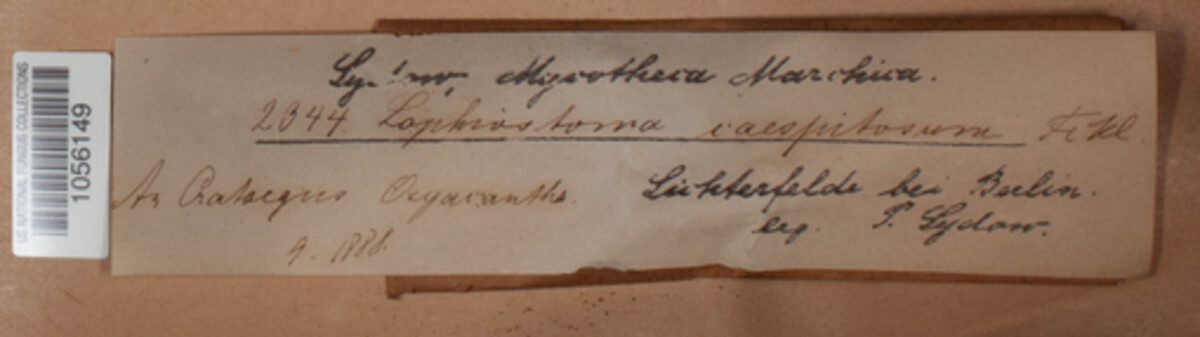 US NATIONAL FUNGUS COLLECTIONS
1056149
Sydow, Mycotheca Marchica.
2344 Lophiostoma caespitosum Fckl
An Crataegus Oxyacantha.
9. 1888.
Lichterfelde bei Berlin.
leg. P. Sydow.